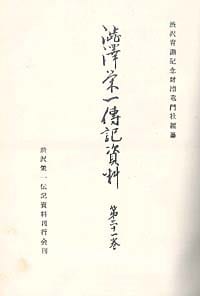 渋沢青淵記念財団竜門社編纂
澁澤栄一傳記資料
第三十一巻
渋沢栄一伝記資料刊行会刊